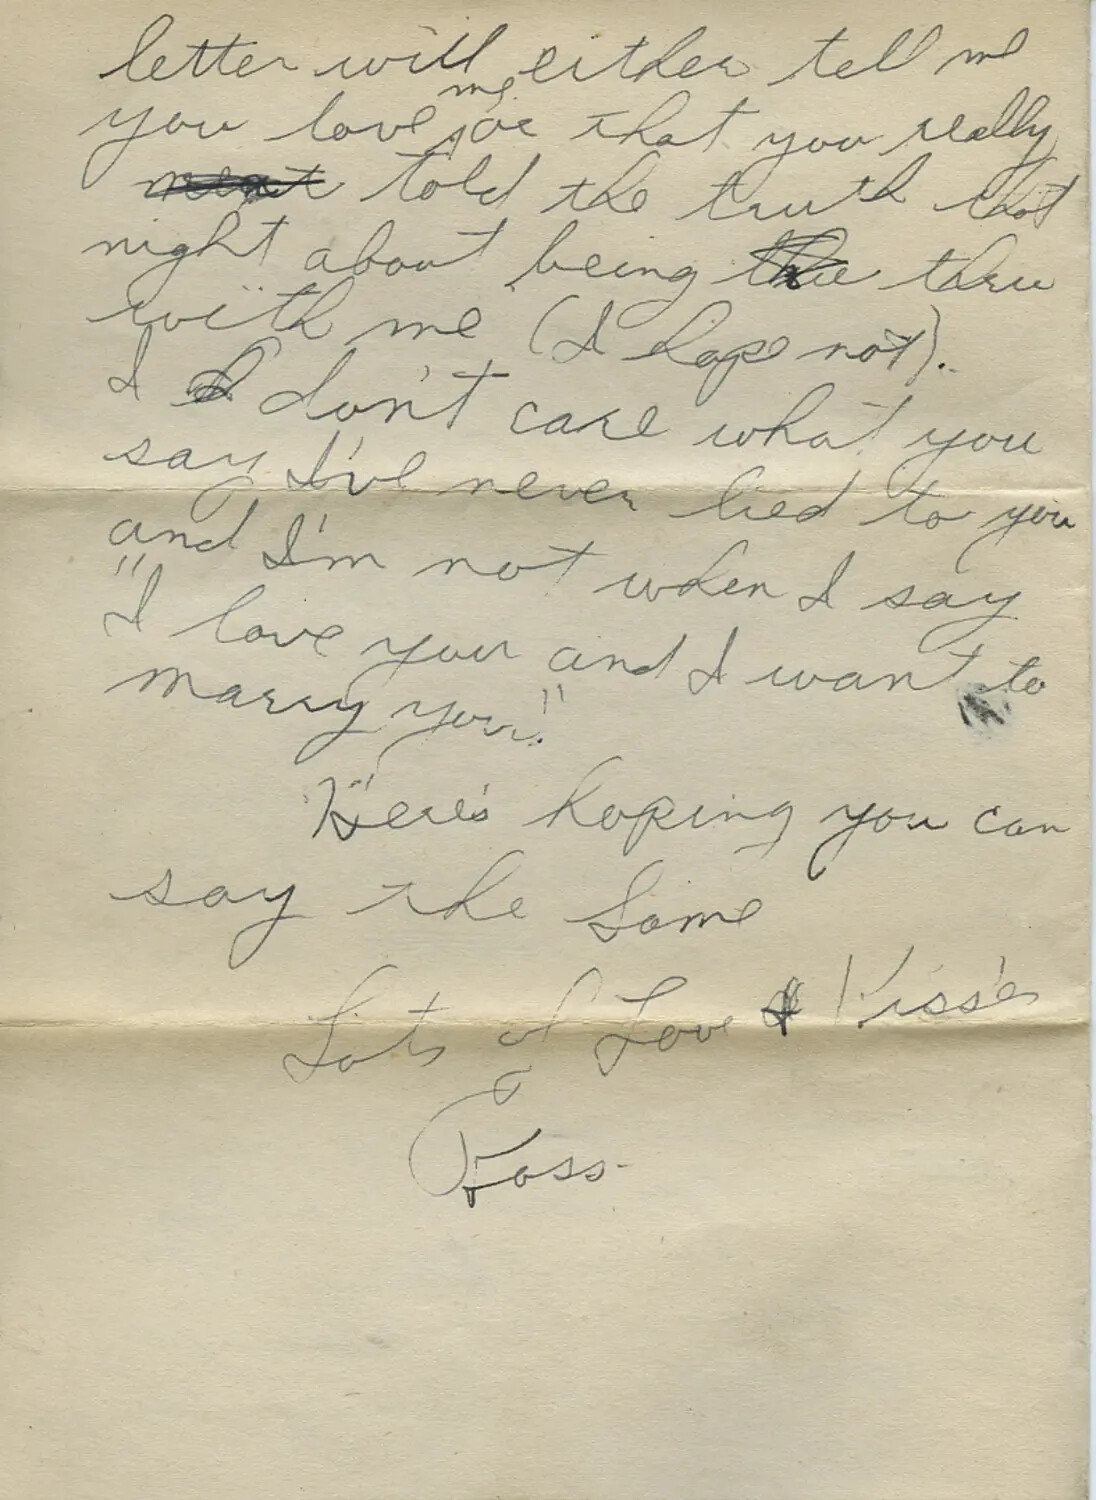 letter will either tell me
you love me, or that you really
ment told the truth that
night about being thr thru
with me (I hope not).
I d don't care what you
say I've never lied to you
and I'm not when I say
"I love you and I want to
marry you."
Here's hoping you can
say the same
Lots of Love & Kiss'es
Ross-